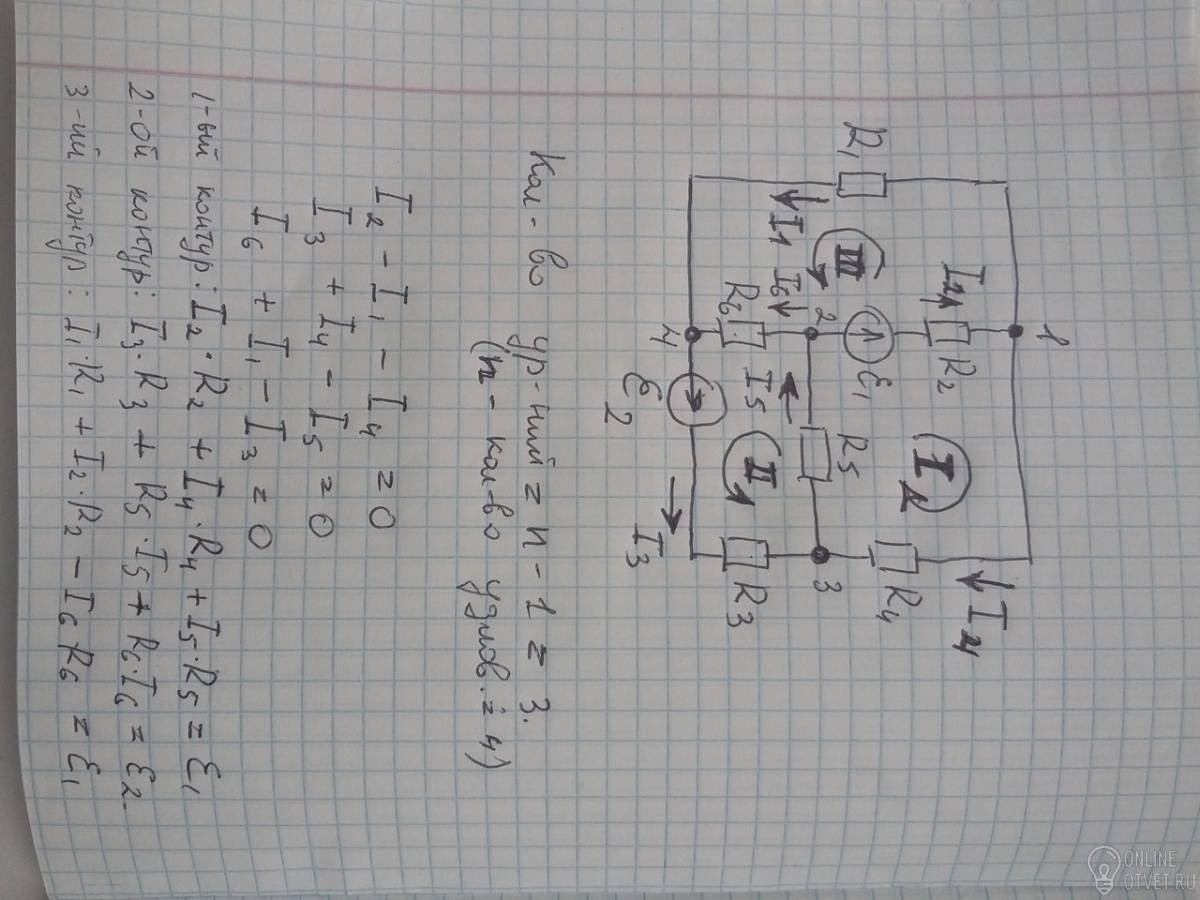 1
R₁
I₁
III
I₂
R₂
I
I₄
ℰ₁
2
I₆
R₆
R₅
I₅
R₄
3
4
ℰ₂
II
R₃
I₃
Кол-во ур-ний = n - 1 = 3.
(n - кол-во узлов. = 4)
I₂ - I₁ - I₄ = 0
I₃ + I₄ - I₅ = 0
I₆ + I₁ - I₃ = 0
1-ый контур: I₂·R₂ + I₄·R₄ + I₅·R₅ = ℰ₁
2-ой контур: I₃·R₃ + R₅·I₅ + R₆·I₆ = ℰ₂.
3-ий контур: I₁·R₁ + I₂·R₂ - I₆R₆ = ℰ₁
ONLINE
OTVET.RU